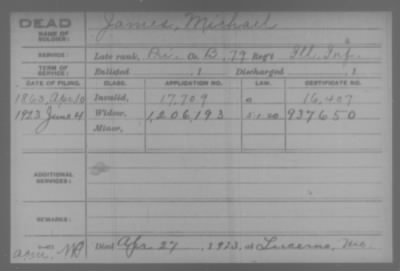 DEAD
NAME OF SOLDIER: James, Michael
SERVICE: Late rank, Pri. Co. B, 79 Reg't Ill. Inf.
TERM OF SERVICE: Enlisted , 1 Discharged , 1
DATE OF FILING. CLASS. APPLICATION NO. LAW. CERTIFICATE NO.
1863, Apr 10 Invalid, 17,709 16,407
1923 June 4 Widow, 1,206,193 5-1-20 937650
Minor,
ADDITIONAL SERVICES:
REMARKS:
Died Apr 27, 1923, at Lucerne, Mo.